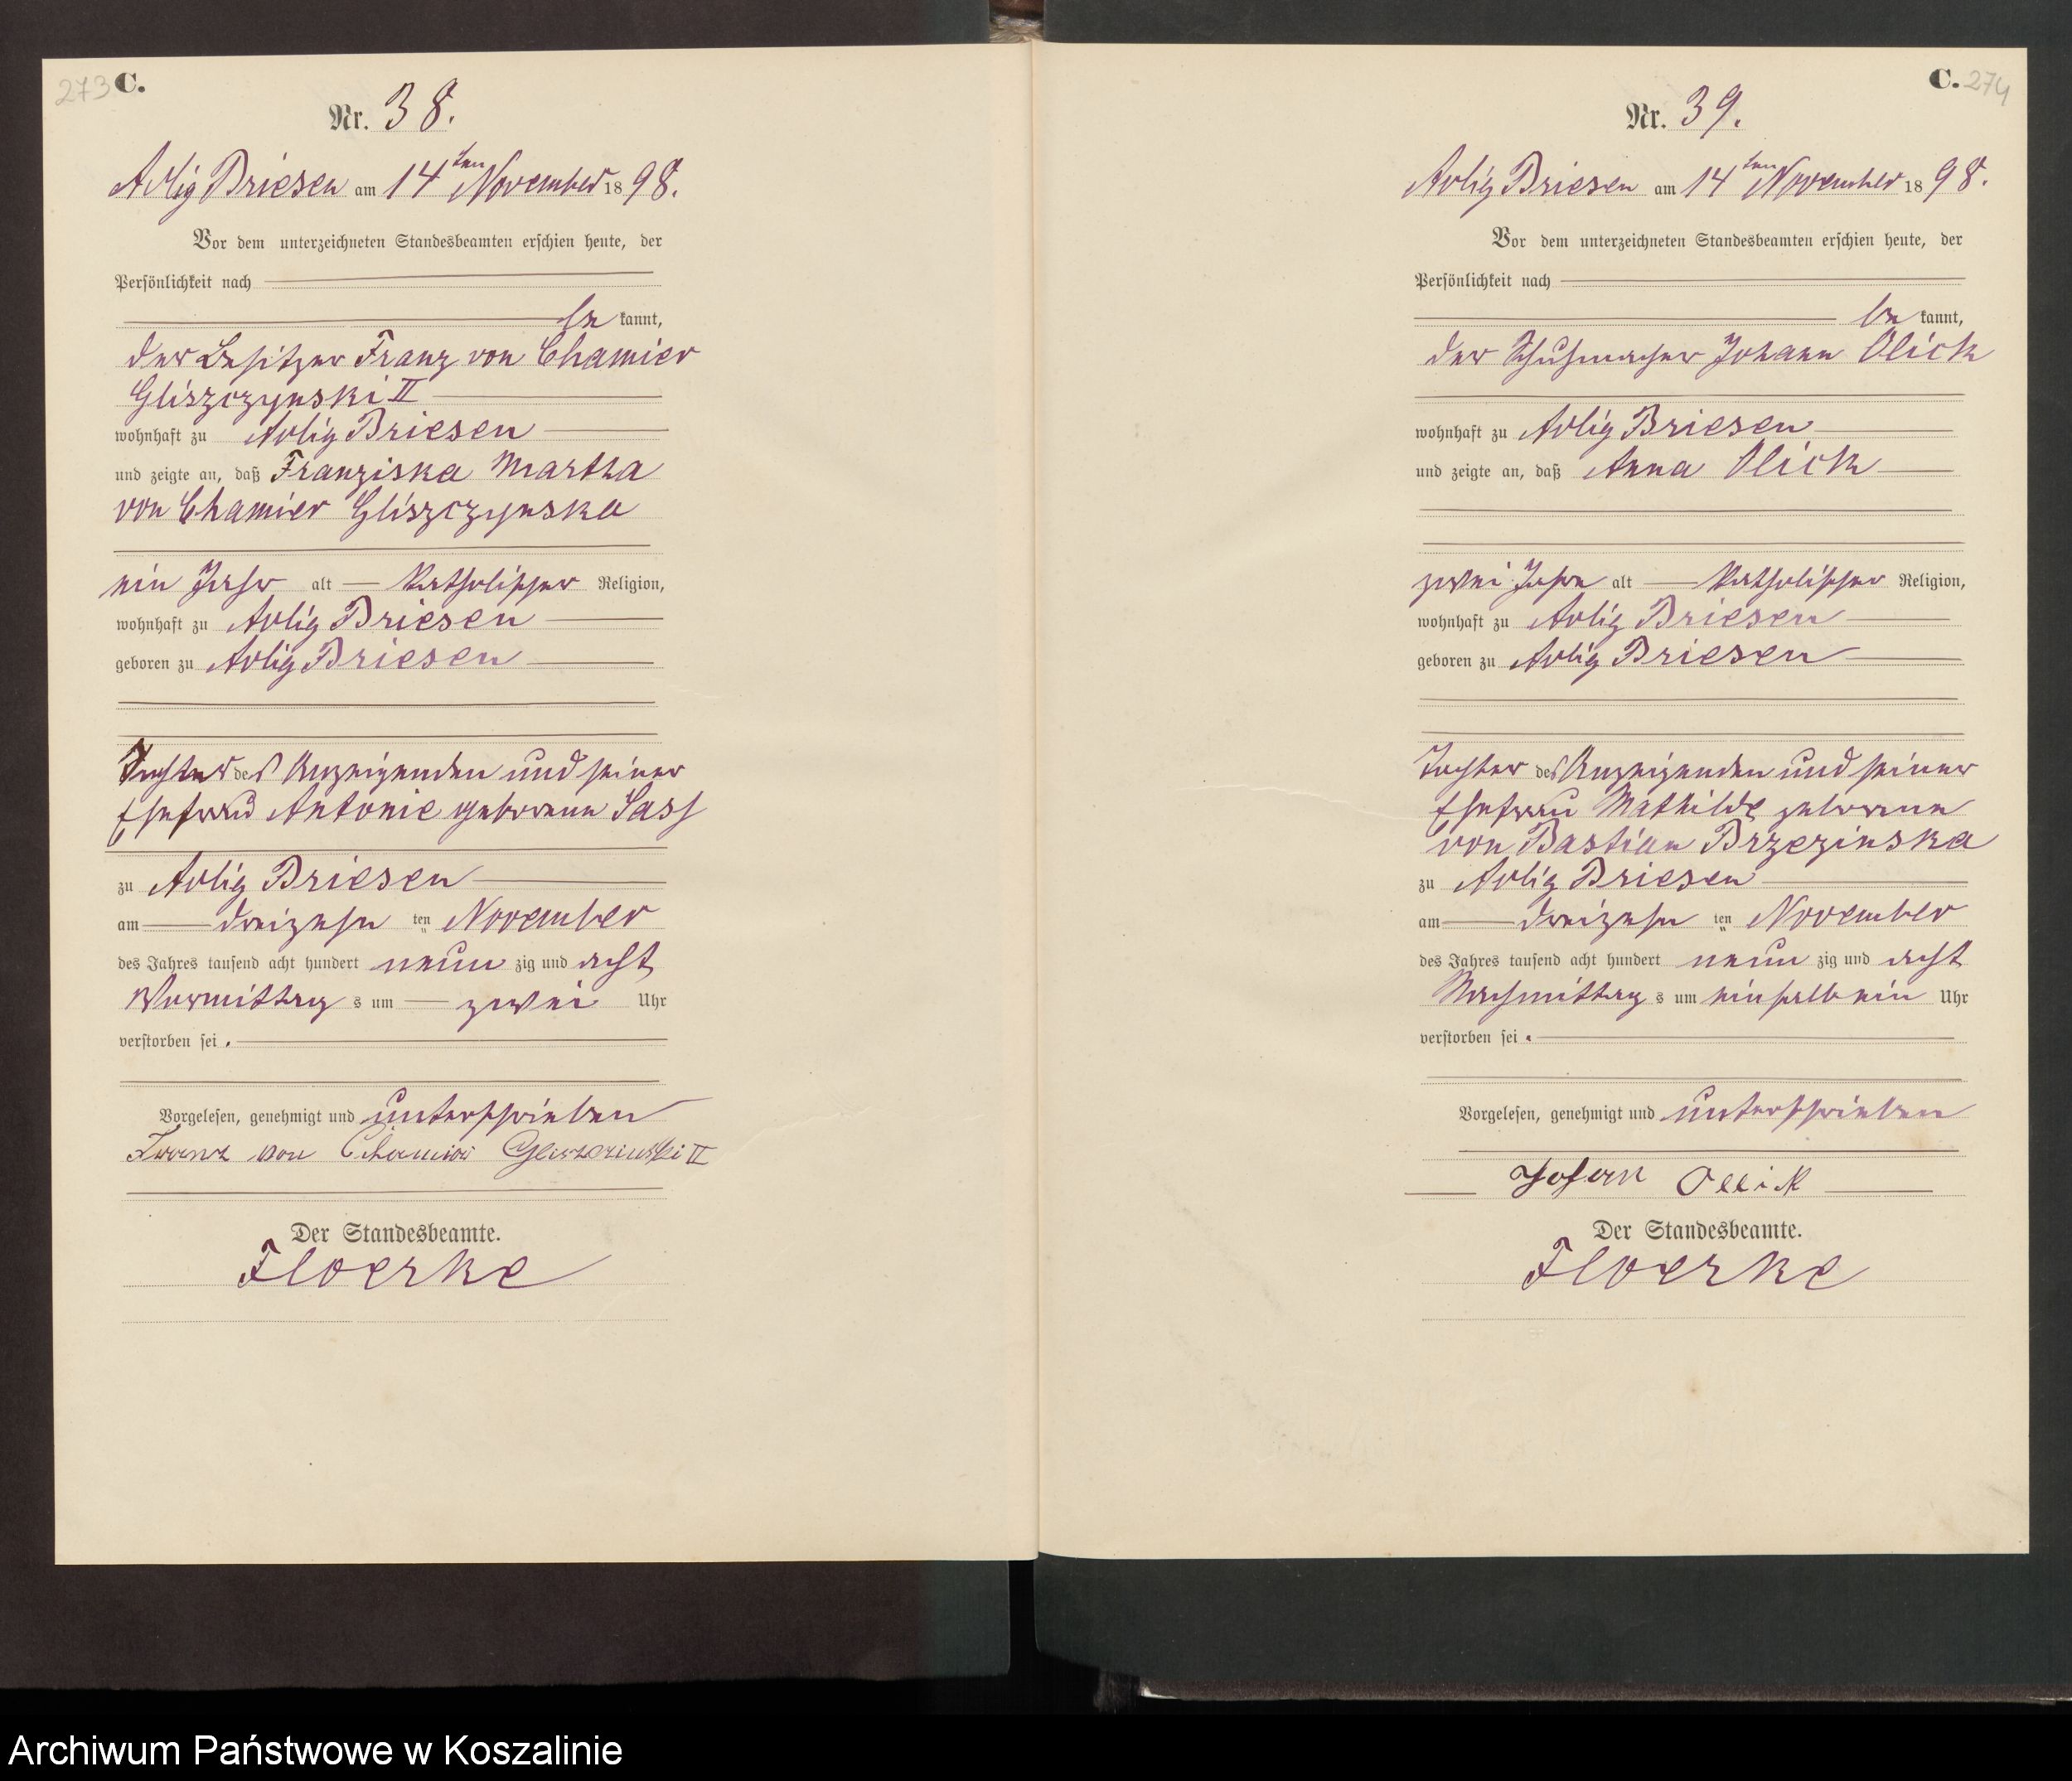 273 C.
Nr. 38.
Adlig Briesen am 14ten November 1898.
Vor dem unterzeichneten Standesbeamten erschien heute, der
Persönlichkeit nach
be kannt,
der Besitzer Franz von Chamier
Gliszczynski II
wohnhaft zu Adlig Briesen
und zeigte an, daß Franziska Martha
von Chamier Gliszczynska
ein Jahr alt katholischer Religion,
wohnhaft zu Adlig Briesen
geboren zu Adlig Briesen
Tochter des Anzeigenden und seiner
Ehefrau Antonie geborenen Sass
zu Adlig Briesen
am dreizehn ten November
des Jahres tausend acht hundert neun zig und acht
Vormittag s um zwei Uhr
verstorben sei.
Vorgelesen, genehmigt und unterschrieben
Franz von Chamier Gliszczinski II
Der Standesbeamte.
Floerke
C. 274
Nr. 39.
Adlig Briesen am 14ten November 1898.
Vor dem unterzeichneten Standesbeamten erschien heute, der
Persönlichkeit nach
be kannt,
der Schuhmacher Johann Olick
wohnhaft zu Adlig Briesen
und zeigte an, daß Anna Olick
zwei Jahre alt katholischer Religion,
wohnhaft zu Adlig Briesen
geboren zu Adlig Briesen
Tochter des Anzeigenden und seiner
Ehefrau Mathilde geborenen
von Bastian Brzezinska
zu Adlig Briesen
am dreizehn ten November
des Jahres tausend acht hundert neun zig und acht
Nachmittag s um einhalb ein Uhr
verstorben sei.
Vorgelesen, genehmigt und unterschrieben
Johan Ollik
Der Standesbeamte.
Floerke
Archiwum Państwowe w Koszalinie